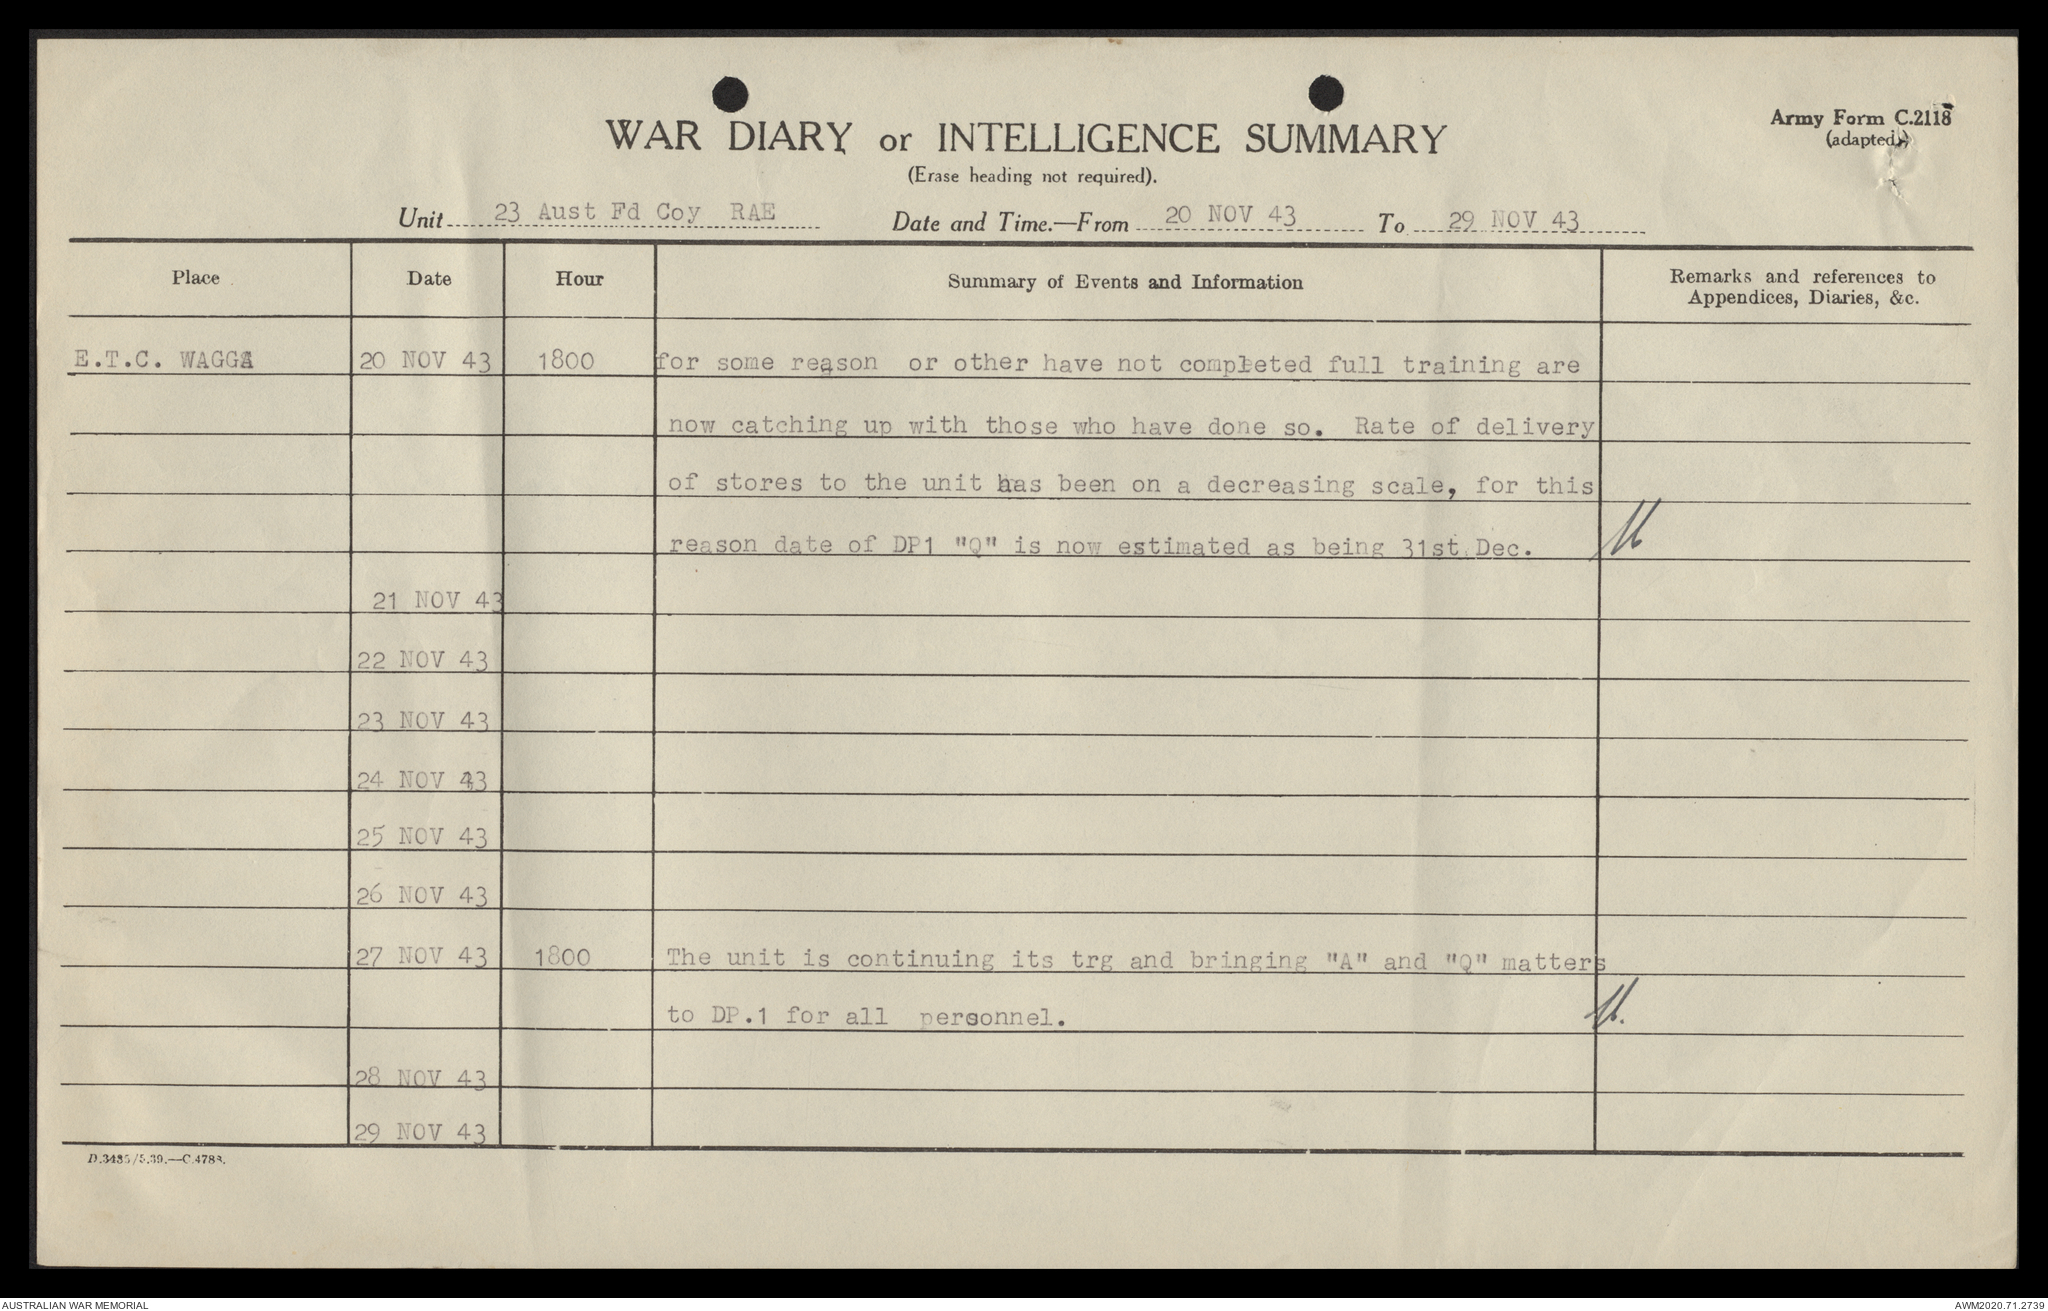 Army Form C.2118
(adapted)
WAR DIARY or INTELLIGENCE SUMMARY
(Erase heading not required).
Unit 23 Aust Fd Coy RAE Date and Time.—From 20 NOV 43 To 29 NOV 43
Place Date Hour Summary of Events and Information Remarks and references to
Appendices, Diaries, &c.
E.T.C. WAGGA 20 NOV 43 1800 for some reason or other have not completed full training are
now catching up with those who have done so. Rate of delivery
of stores to the unit has been on a decreasing scale, for this
reason date of DP1 "Q" is now estimated as being 31st Dec.
21 NOV 43
22 NOV 43
23 NOV 43
24 NOV 43
25 NOV 43
26 NOV 43
27 NOV 43 1800 The unit is continuing its trg and bringing "A" and "Q" matters
to DP.1 for all personnel.
28 NOV 43
29 NOV 43
D.3485/5.39.—C.4783.
AUSTRALIAN WAR MEMORIAL AWM2020.71.2739